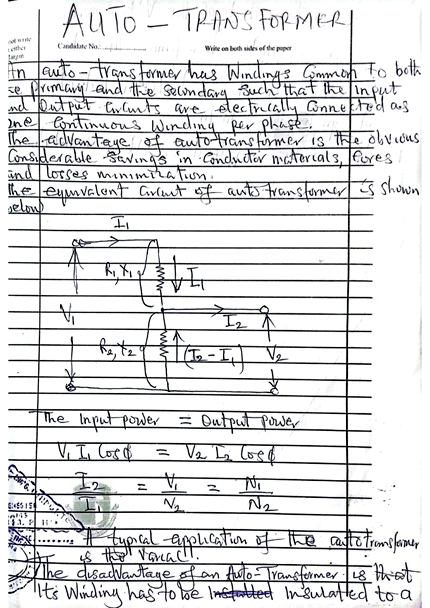 AUTO - TRANSFORMER
Candidate No.
Write on both sides of the paper
not write
either
margin
An auto-transformer has Windings Common to both
the primary and the secondary such that the input
and Output Circuits are electrically Connected as
one Continuous Winding per phase.
The advantage of autotransformer is the obvious
Considerable Savings in Conductor materials, Cores
and losses minimization.
The equivalent Circuit of auto transformer is shown
below
I1
R1, X1
I1
V1
I2
R2, X2
(I2 - I1)
V2
The Input power = Output Power
V1 I1 Cosϕ = V2 I2 Cosϕ
I2/I1 = V1/V2 = N1/N2
A typical application of the autotransformer
is the Variac.
The disadvantage of an Auto-Transformer is that
its Winding has to be insulated to a